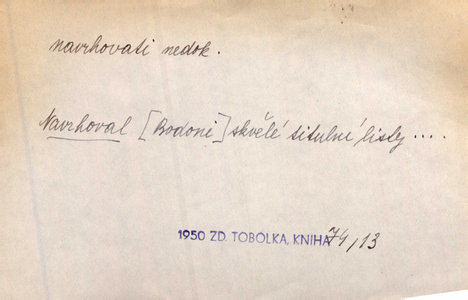 navrhovati nedok.
Navrhoval [Bodoni] skvělé titulní listy ....
1950 ZD. TOBOLKA, KNIHA 74,13